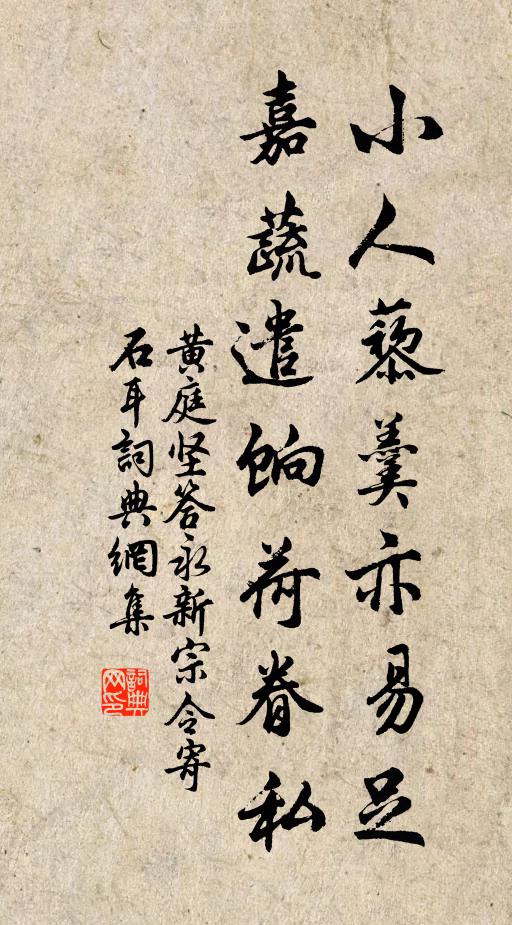 小人藜羹亦易足
嘉蔬遣餉荷眷私
黄庭坚答永新宗令寄
石耳詞典網集
詞典
网印